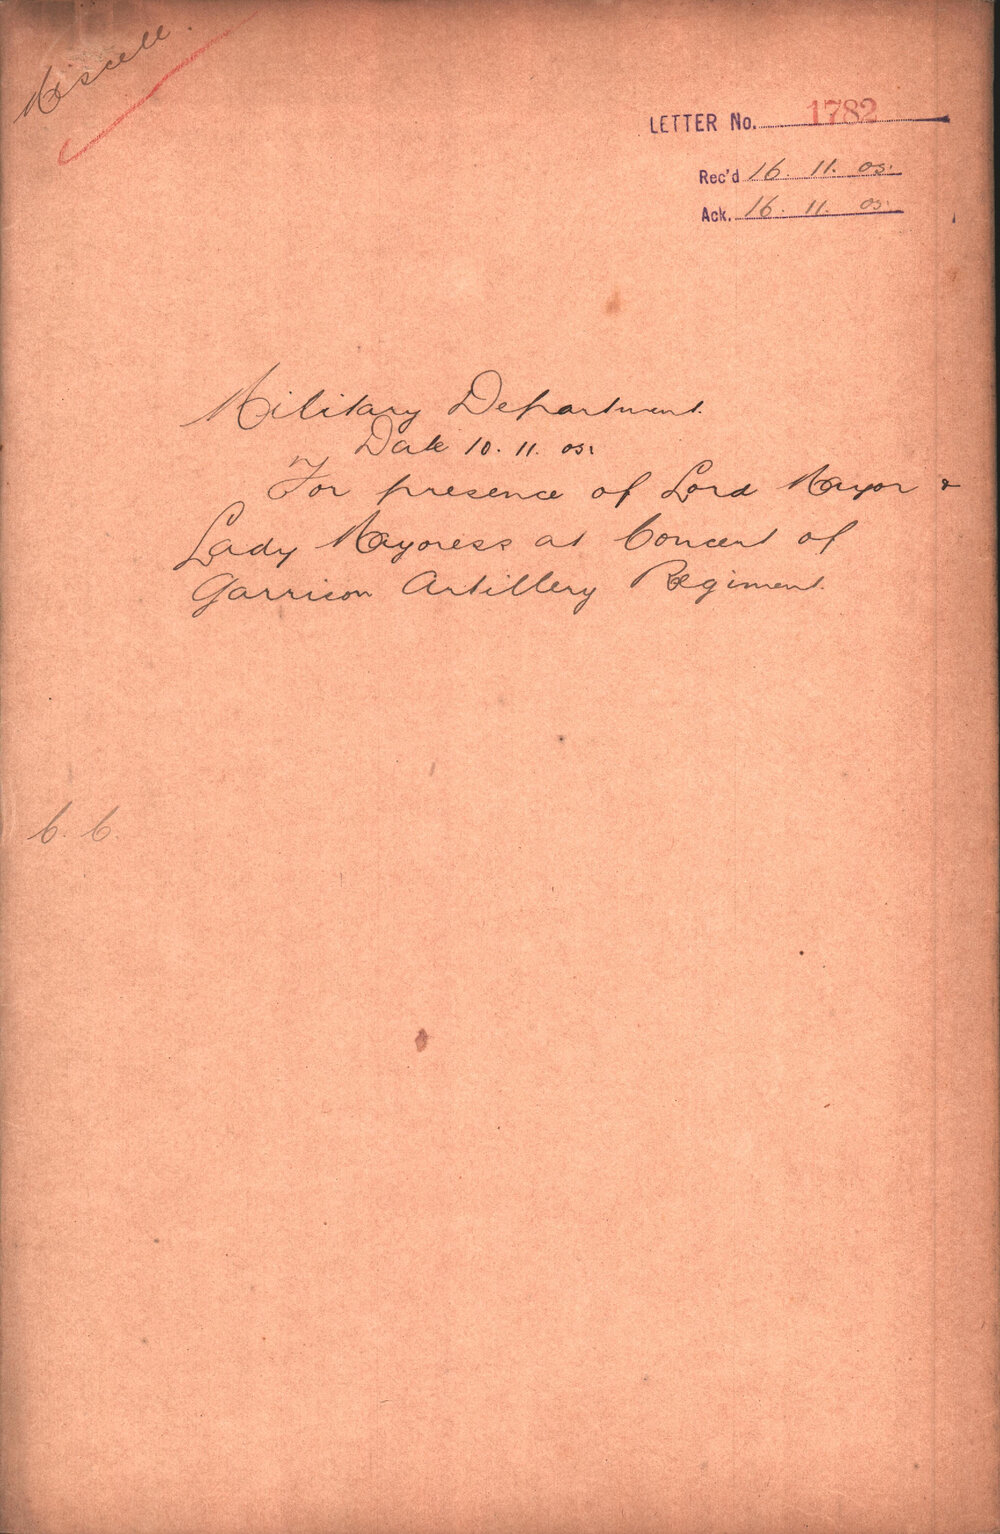 Miscell.
LETTER No. 1782
Rec'd 16. 11. 05.
Ack. 16. 11. 05.
Military Department.
Date 10. 11. 05.
For presence of Lord Mayor &
Lady Mayoress at Concert of
Garrison Artillery Regiment.
C. C.